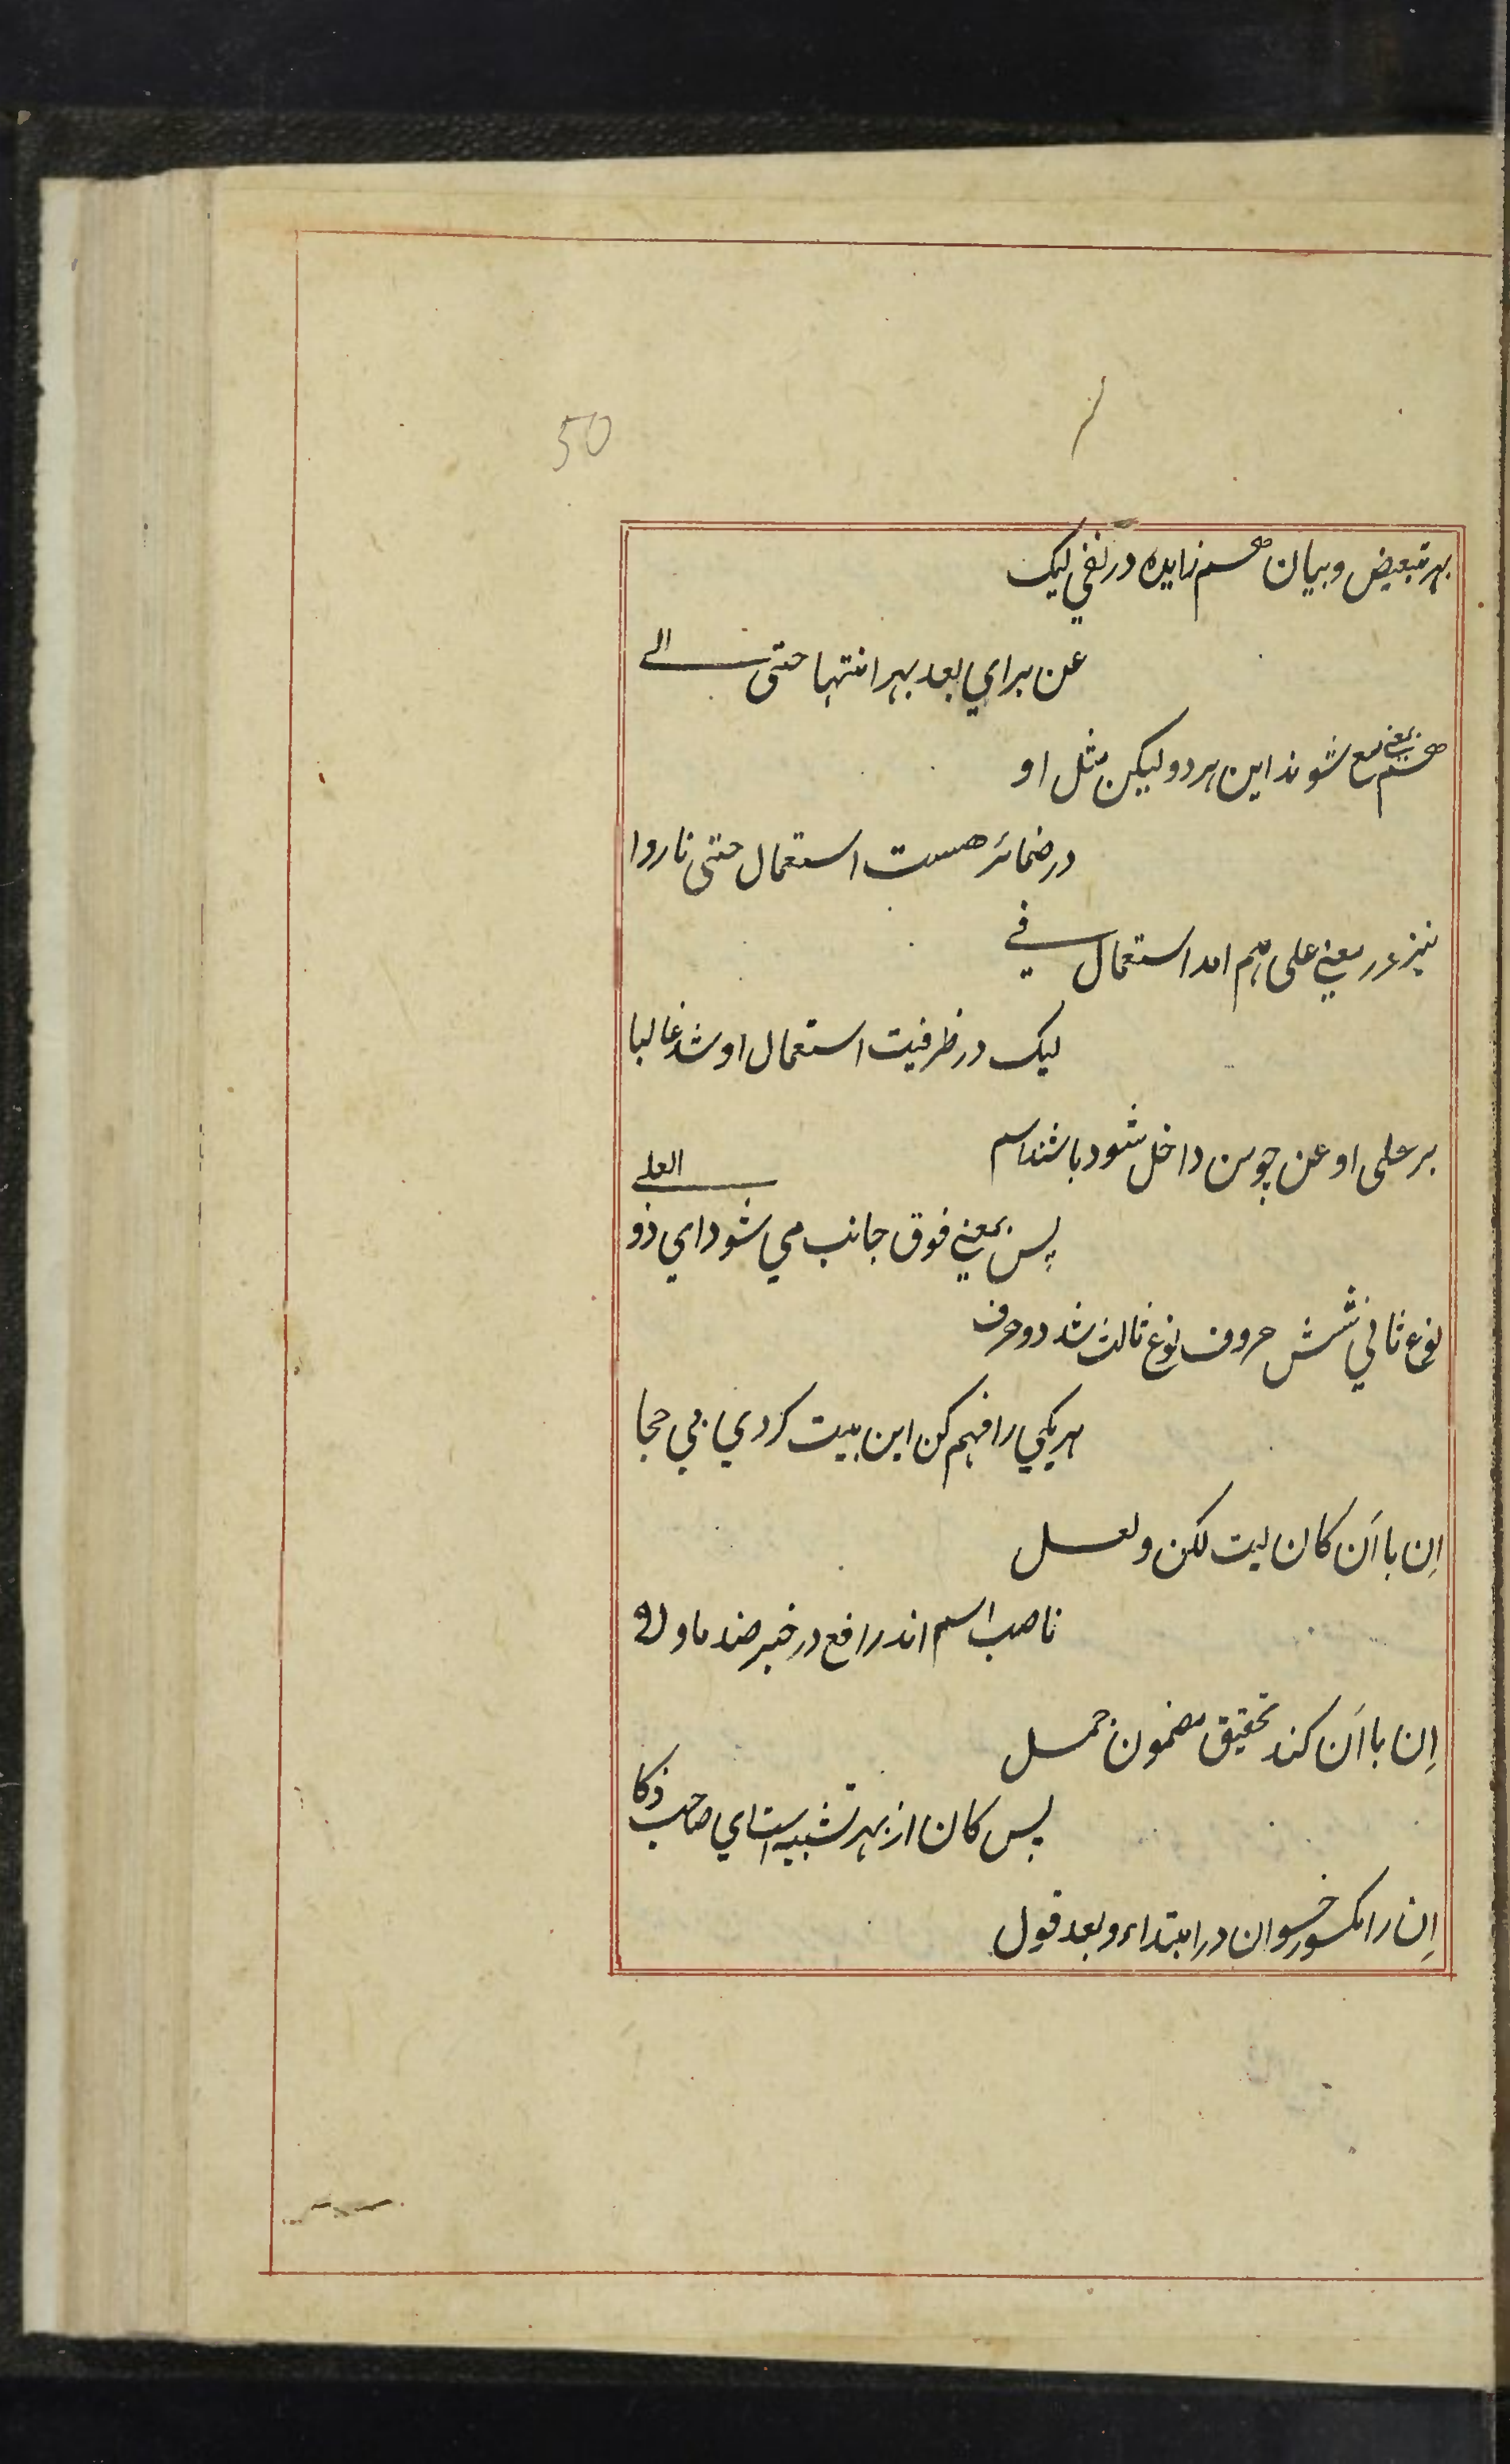 50
بهر تبعیض و بیان هم زایده در نفی لیک
عن برای بعد بهر انتها حتی الی
هم بمعنی مع شوند این هر دو لیکن مثل او
در ضمائر هست استعمال حتی ناروا
نیز در معنی علی هم امد استعمال في
لیک در ظرفیت استعمال او شد غالبا
بر علی او عن چو من داخل شود باشند اسم
پس بمعنی فوق جانب می شود ای ذو العلی
نوع ثانی شش حروف نوع ثالث شد دو حرف
هر یکی را فهم کن این بیت کردی بی حجا
اِن با اَن کان لیت لکن ولعل
ناصب اسم اند رافع در خبر ضد ما و لا
اِن با اَن کند تحقیق مضمون جمل
پس کان از بهر تشبیه است ای صاحب ذکا
اِن را مکسور خوان در ابتداء و بعد قول